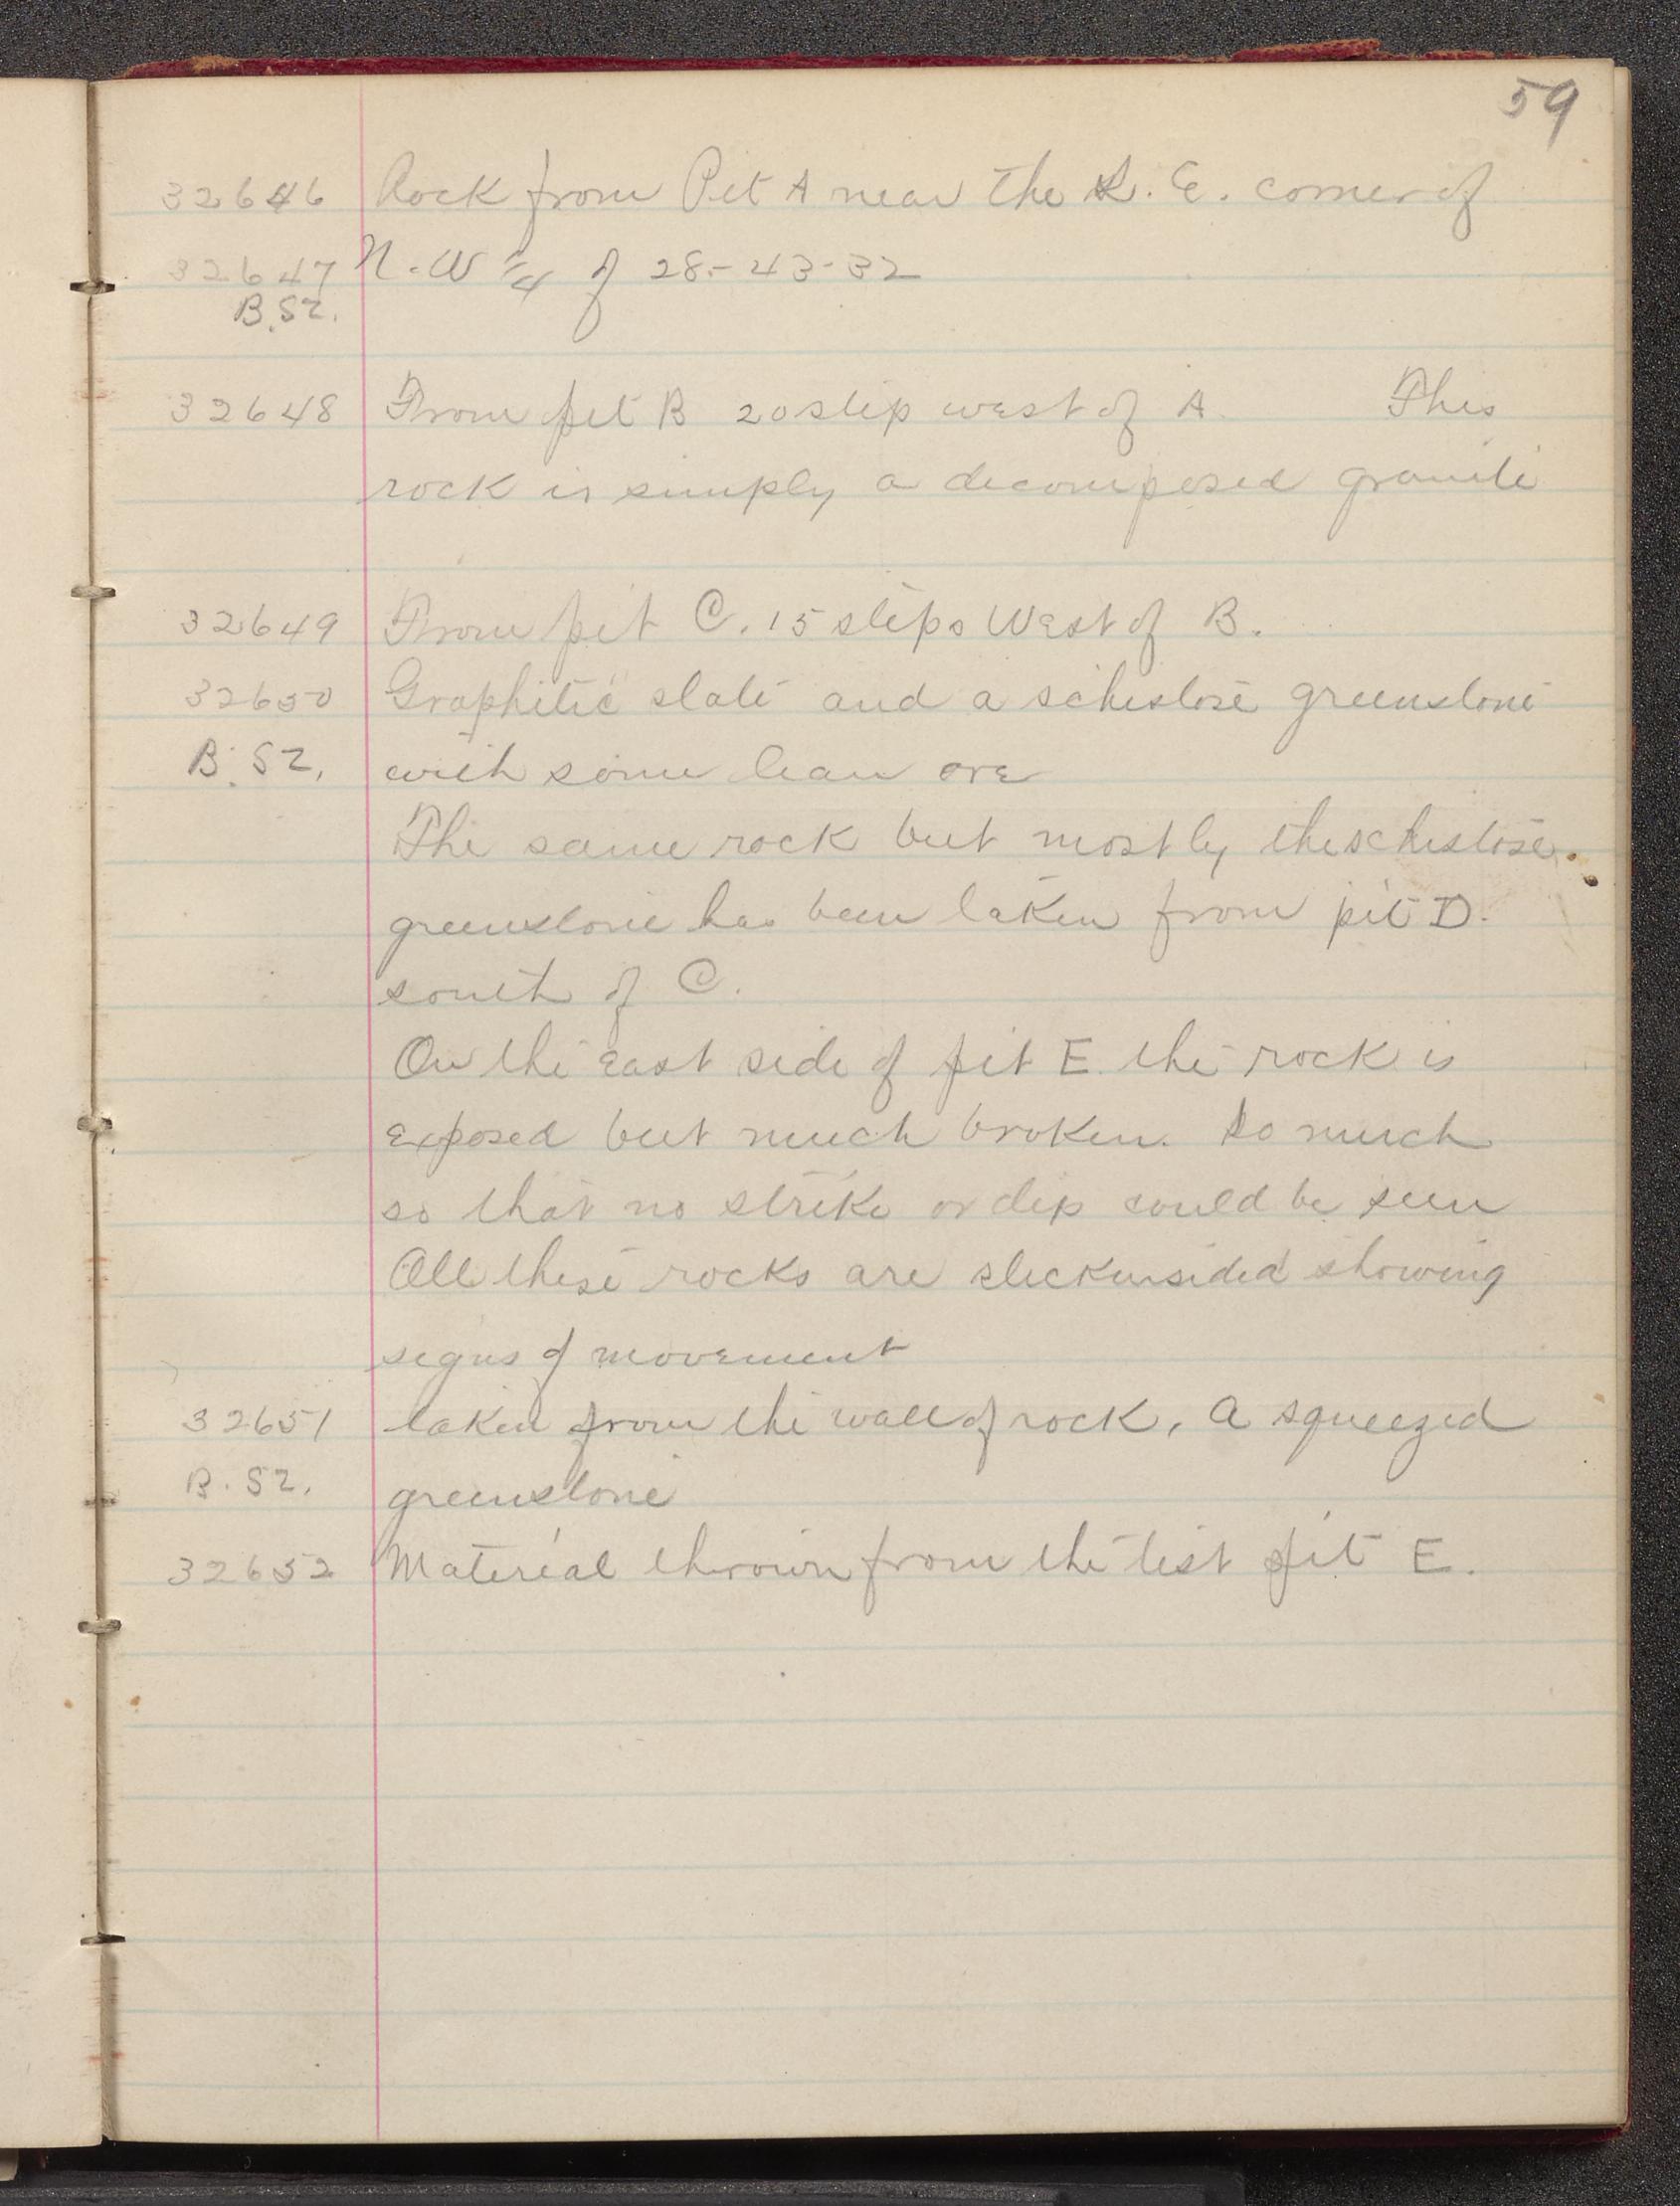 59
32646 Rock from Pit A near the S. E. corner of
32647 N. W 1/4 of 28-43-32
B. S2.
32648 From pit B 20 step west of A. This
rock is simply a decomposed granite
32649 From pit C. 15 steps West of B.
32650 Graphitic slate and a schistose greenstone
B. S2. with some lean ore
The same rock but mostly the schistose
greenstone has been taken from pit D.
south of C.
On the east side of pit E. the rock is
exposed but much broken. So much
so that no strike or dip could be seen
All these rocks are slickensided showing
signs of movement
32651 taken from the wall of rock, a squeezed
B. S2. greenstone
32652 Material thrown from the test pit E.